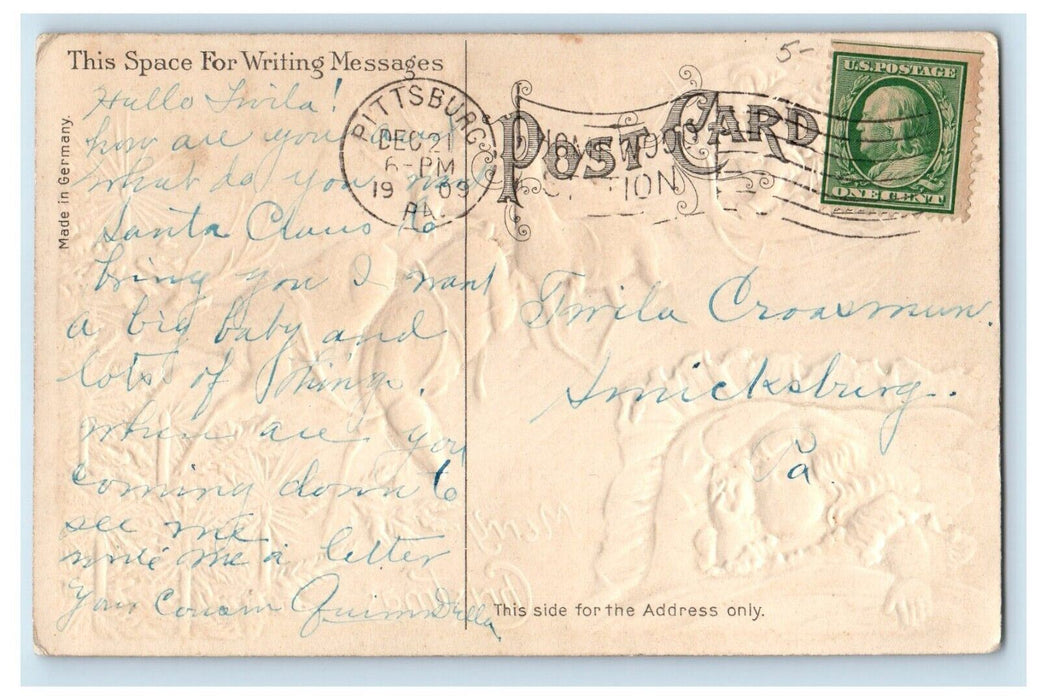 This Space For Writing Messages
Made in Germany.
Hello Twila!
how are you
what do you
Santa Claus to
bring you I want
a big baby and
lots of things.
when are you
coming down to
see me
write me a letter
Your Cousin
PITTSBURG
DEC 21
6-PM
19 09
PA.
STATION
POST CARD
5-
U.S. POSTAGE
ONE CENT
Twila Croasmun.
Smicksburg.
Pa.
Merry
This side for the Address only.